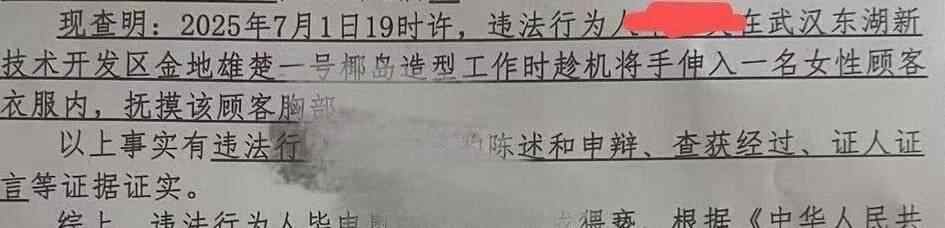 现查明：2025年7月1日19时许，违法行为人在武汉东湖新
技术开发区金地雄楚一号椰岛造型工作时趁机将手伸入一名女性顾客
衣服内，抚摸该顾客胸部
以上事实有违法行陈述和申辩、查获经过、证人证
言等证据证实。
综上，违法行为人猥亵，根据《中华人民共